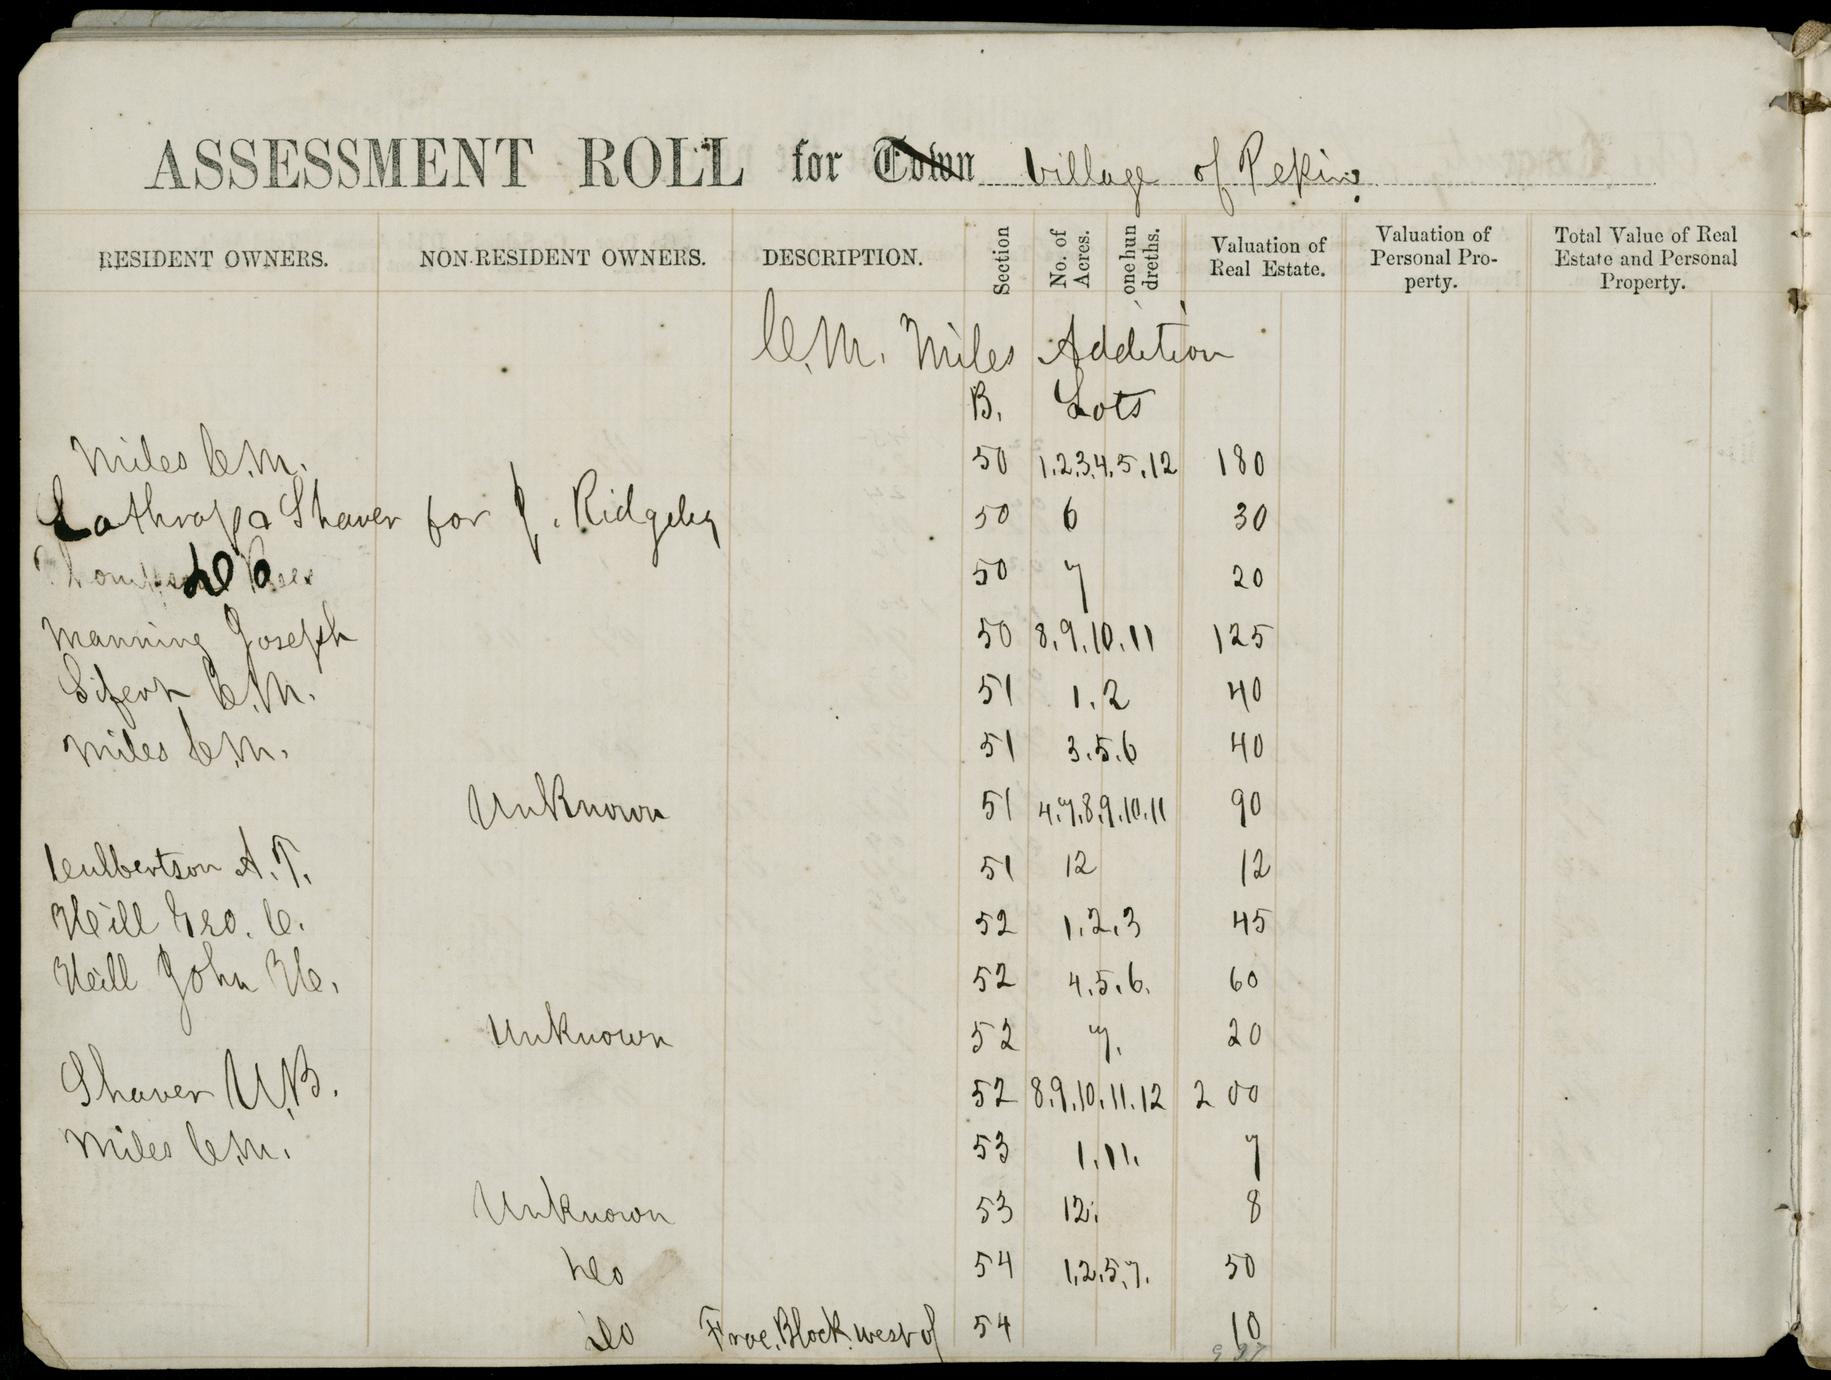 ASSESSMENT ROLL for Town Village of Pekin.
RESIDENT OWNERS. NON-RESIDENT OWNERS. DESCRIPTION. Section No. of Acres. one hun dreths. Valuation of Real Estate. Valuation of Personal Pro-perty. Total Value of Real Estate and Personal Property.
C. M. Miles Addition
B. Lots
Miles C. M. 50 1.2.3.4.5.12 180
Lathrop & Shaver for J. Ridgeley 50 6 30
do 50 7 20
Manning Joseph 50 8.9.10.11 125
C. M. 51 1.2 40
Miles C. M. 51 3.5.6 40
Unknown 51 4.7.8.9.10.11 90
Culbertson A. T. 51 12 12
Neill Geo. C. 52 1.2.3 45
Neill John N. 52 4.5.6. 60
Unknown 52 7. 20
Shaver U. B. 52 8.9.10.11.12 200
Miles C. M. 53 1.11. 7
Unknown 53 12. 8
do 54 1.2.5.7. 50
do Frac. Block west of 54 10
937